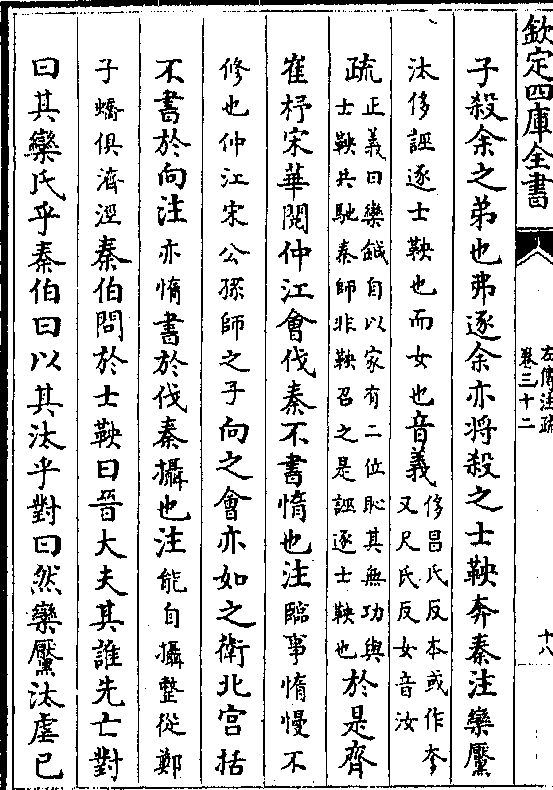 欽定四庫全書
左傳注疏
卷三十二
十八
子殺余之弟也弗逐余亦將殺之士鞅奔秦注欒黶
汰侈誣逐士鞅也而女也音義侈昌氏反本或作奓
又尺氏反女音汝
疏正義曰欒鍼自以家有二位恥其無功與
士鞅共馳秦師非鞅召之是誣逐士鞅也於是齊
崔杼宋華閱仲江會伐秦不書惰也注臨事惰慢不
修也仲江宋公孫師之子向之會亦如之衛北宮括
不書於向注亦惰書於伐秦攝也注能自攝整從鄭
子蟜俱濟涇秦伯問於士鞅曰晉大夫其誰先亡對
曰其欒氏乎秦伯曰以其汰乎對曰然欒黶汰虐已